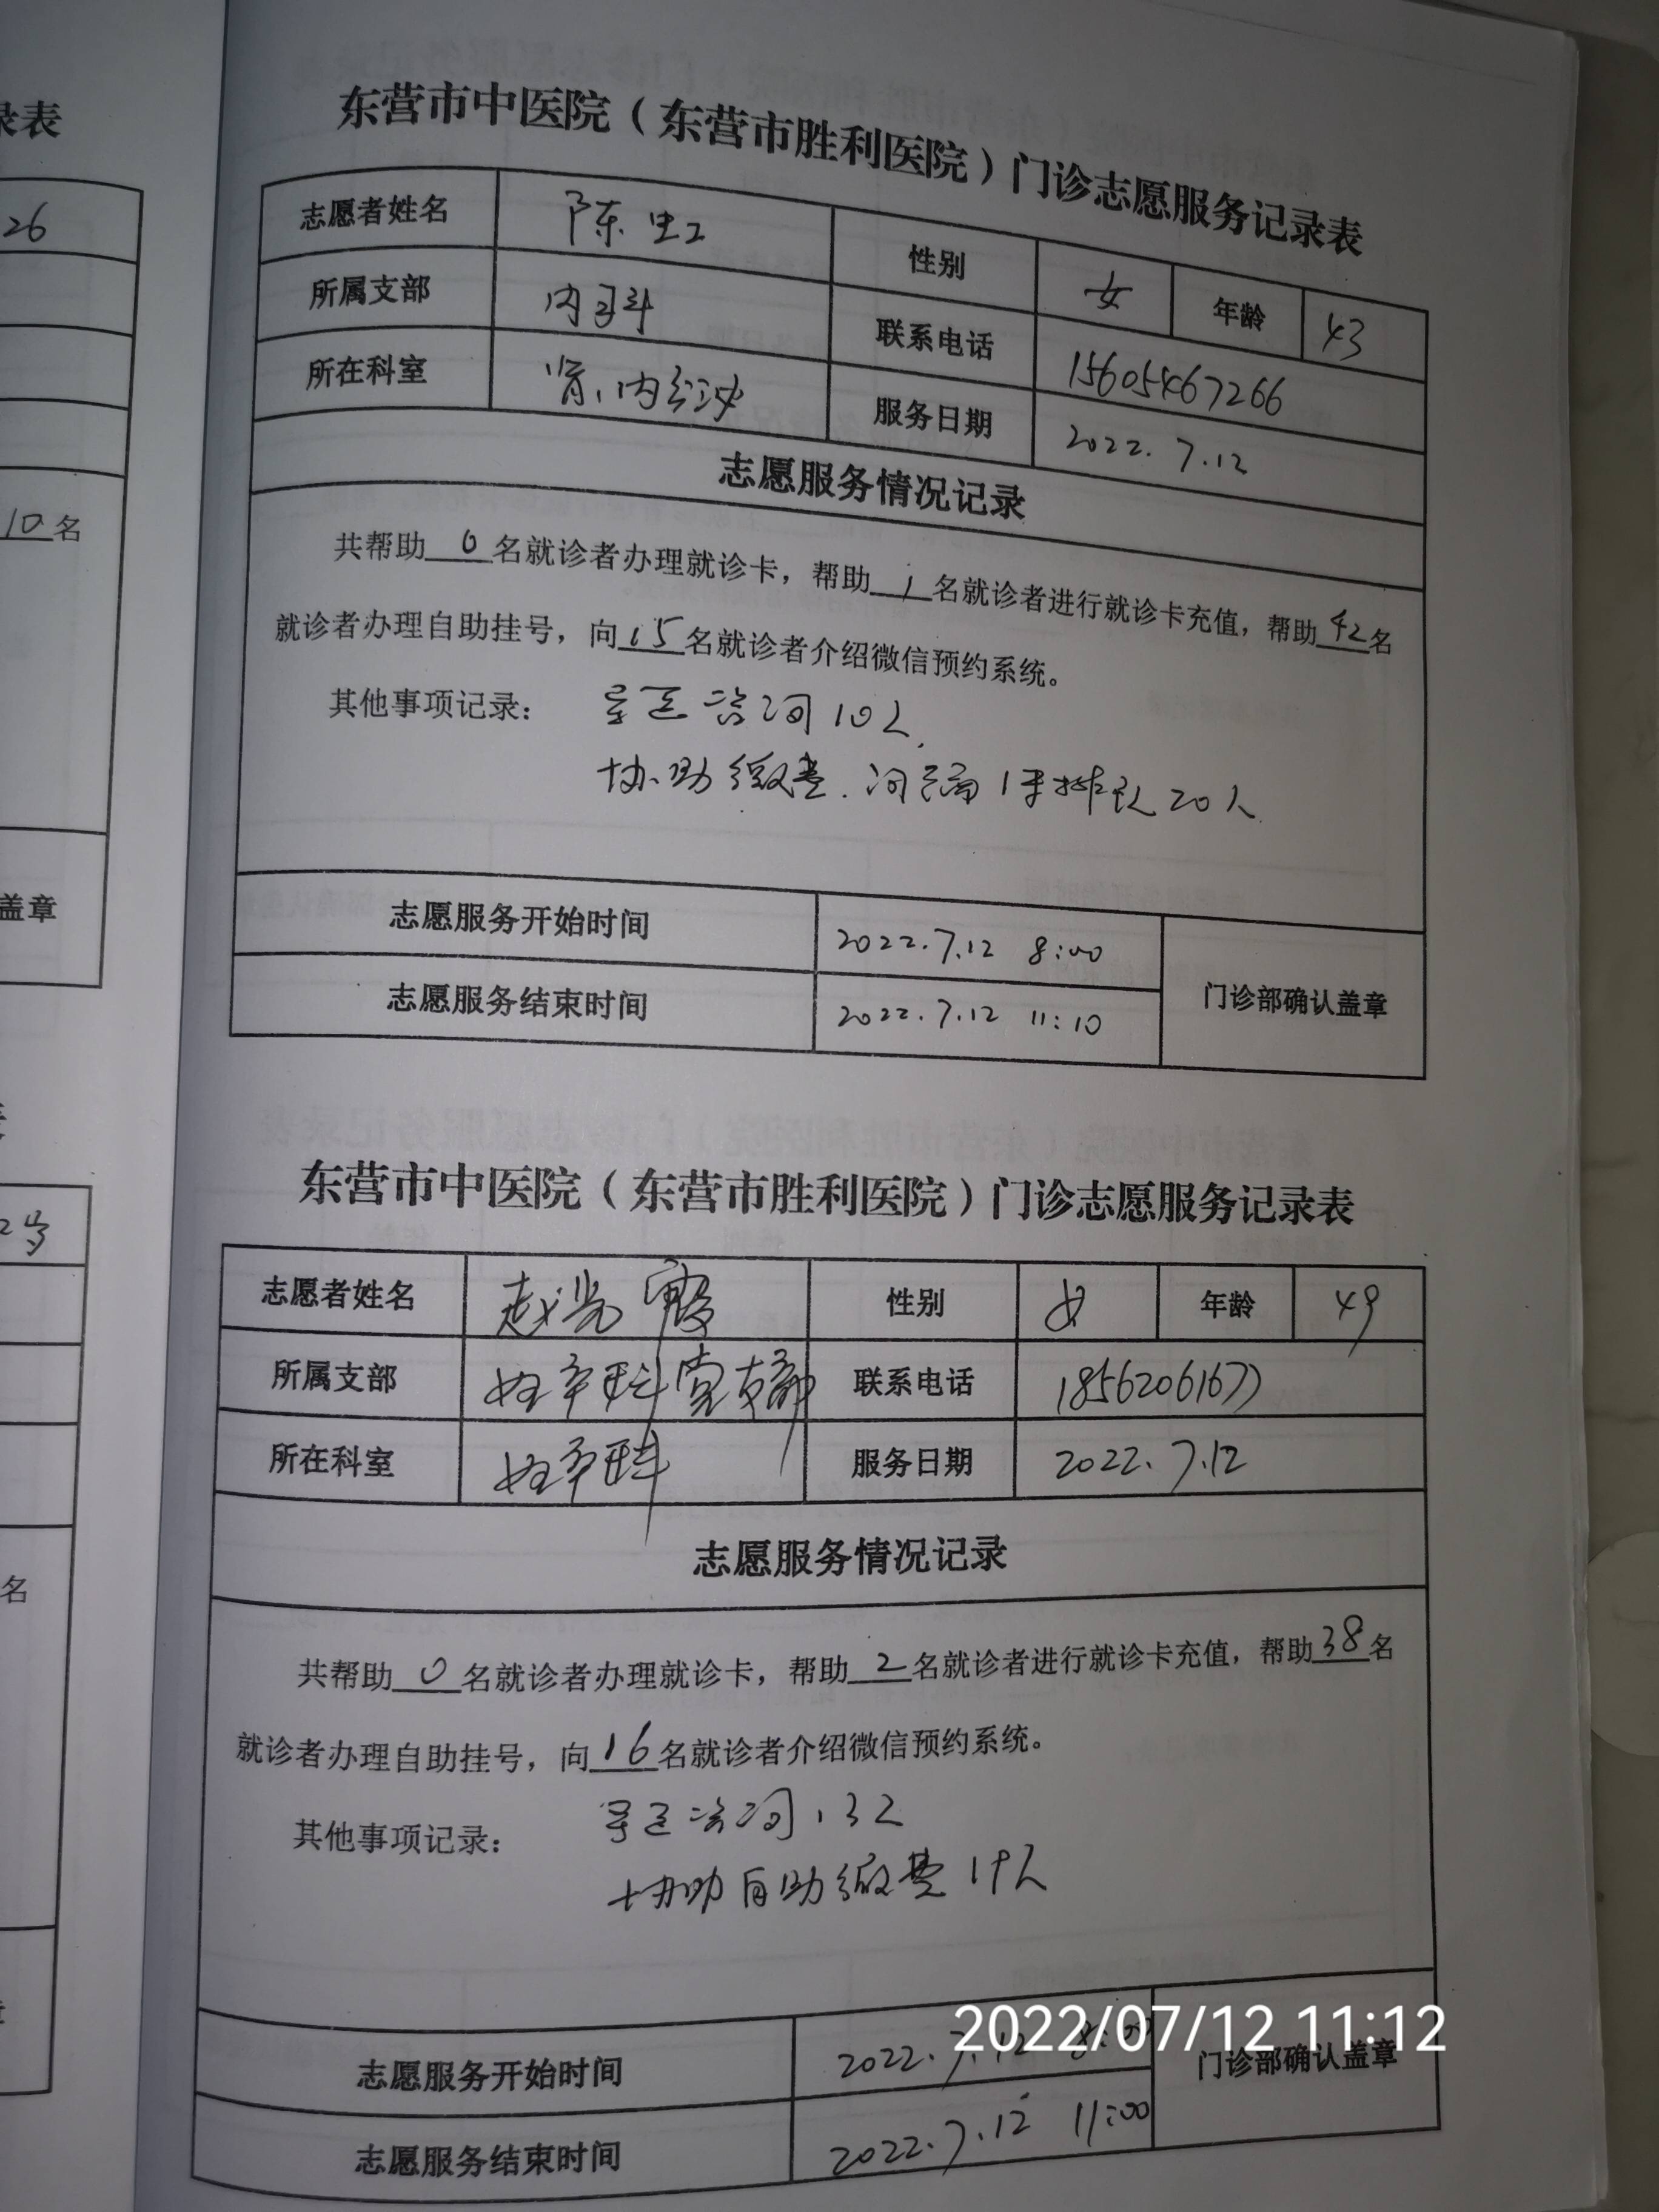 录表
26
10名
盖章
2岁
名
东营市中医院（东营市胜利医院）门诊志愿服务记录表
志愿者姓名 陈虹 性别 女 年龄 43
所属支部 内科 联系电话 15605467266
所在科室 肾、内分泌 服务日期 2022.7.12
志愿服务情况记录
共帮助0名就诊者办理就诊卡，帮助1名就诊者进行就诊卡充值，帮助42名
就诊者办理自助挂号，向15名就诊者介绍微信预约系统。
其他事项记录： 导医咨询10人
协助缴费 排队20人
志愿服务开始时间 2022.7.12 8:00
志愿服务结束时间 2022.7.12 11:10
门诊部确认盖章
东营市中医院（东营市胜利医院）门诊志愿服务记录表
志愿者姓名 赵光霞 性别 女 年龄 49
所属支部 妇产科党支部 联系电话 18562061677
所在科室 妇产科 服务日期 2022.7.12
志愿服务情况记录
共帮助0名就诊者办理就诊卡，帮助2名就诊者进行就诊卡充值，帮助38名
就诊者办理自助挂号，向16名就诊者介绍微信预约系统。
其他事项记录： 导医咨询13人
协助自助缴费19人
2022/07/12 11:12
志愿服务开始时间 2022.7.12 8:00
门诊部确认盖章
志愿服务结束时间 2022.7.12 11:00